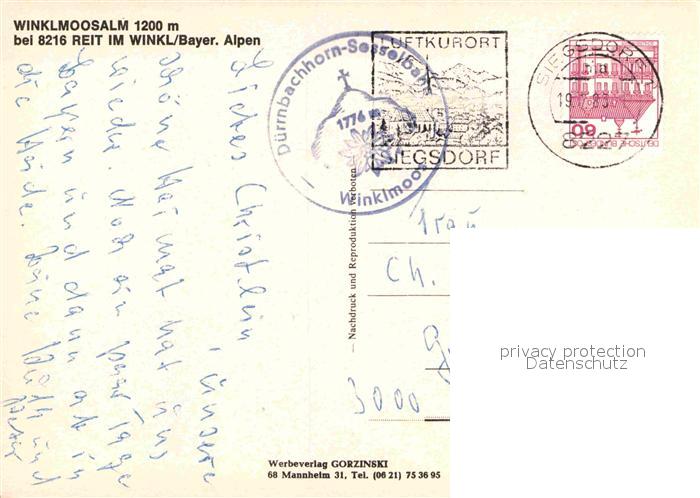 WINKLMOOSALM 1200 m
bei 8216 REIT IM WINKL/Bayer. Alpen
Liebes Christlein,
unsere
schöne Heimat hat uns
wieder. Noch ein paar Tage
Bayern und dann ab in
die Heide.
und
Dürrnbachhorn-Sesselbahn
1776 m
Winklmoos
LUFTKURORT
SIEGSDORF
SIEGSDORF
DEUTSCHE BUNDESPOST
60
— Nachdruck und Reproduktion verboten —
Frau
Ch.
3000
privacy protection
Datenschutz
Werbeverlag GORZINSKI
68 Mannheim 31, Tel. (06 21) 75 36 95